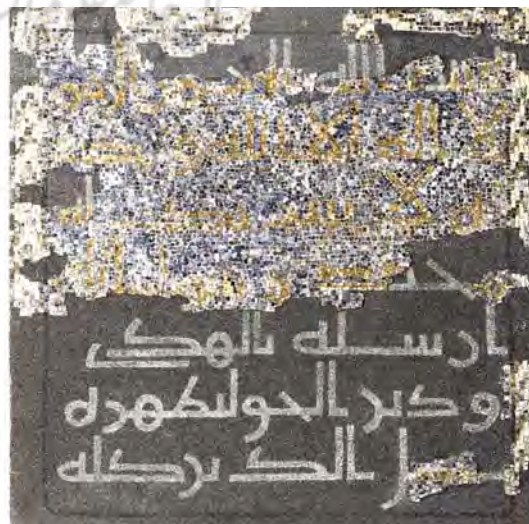 بسم الله الرحمن الرحيم
لا اله الا الله وحد
ه لا شريك له
محمد رسول الله
ارسله بالهدى
ودين الحق ليظهره
على الدين كله